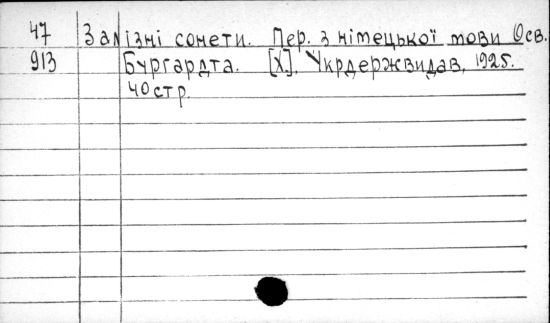 47 Залізні сонети. Пер. з німецької мови Осв.
913 Бургардта. [Х], Укрдержвидав, 1925.
40 стр.